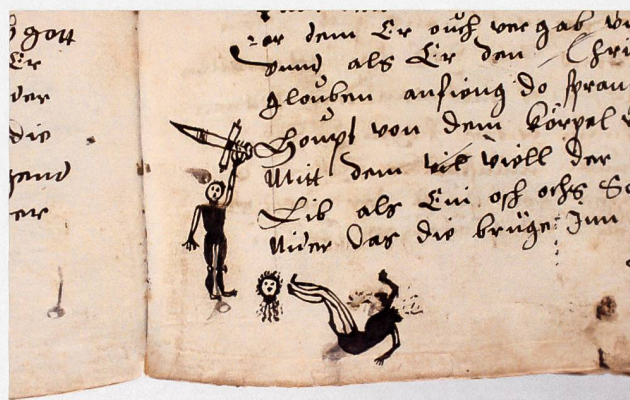 gott
Er
der
die
hand
er
dem Er ouch vergab
vnnd als Er den Chri
glouben anfieng do spran
Houpt von dem Körpel
Mitt dem vil viell der
Lib als Ein och ochs
Nider das die brüge Inn